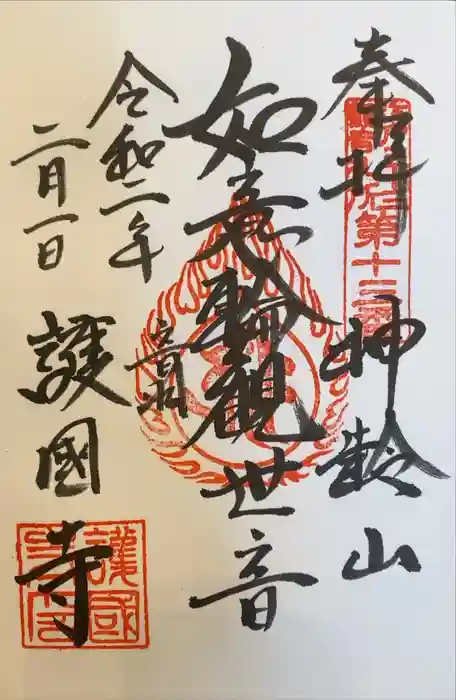 奉拝
神齢山
如意輪観世音
令和二年
二月一日
音羽
護國寺
第十三番
護國